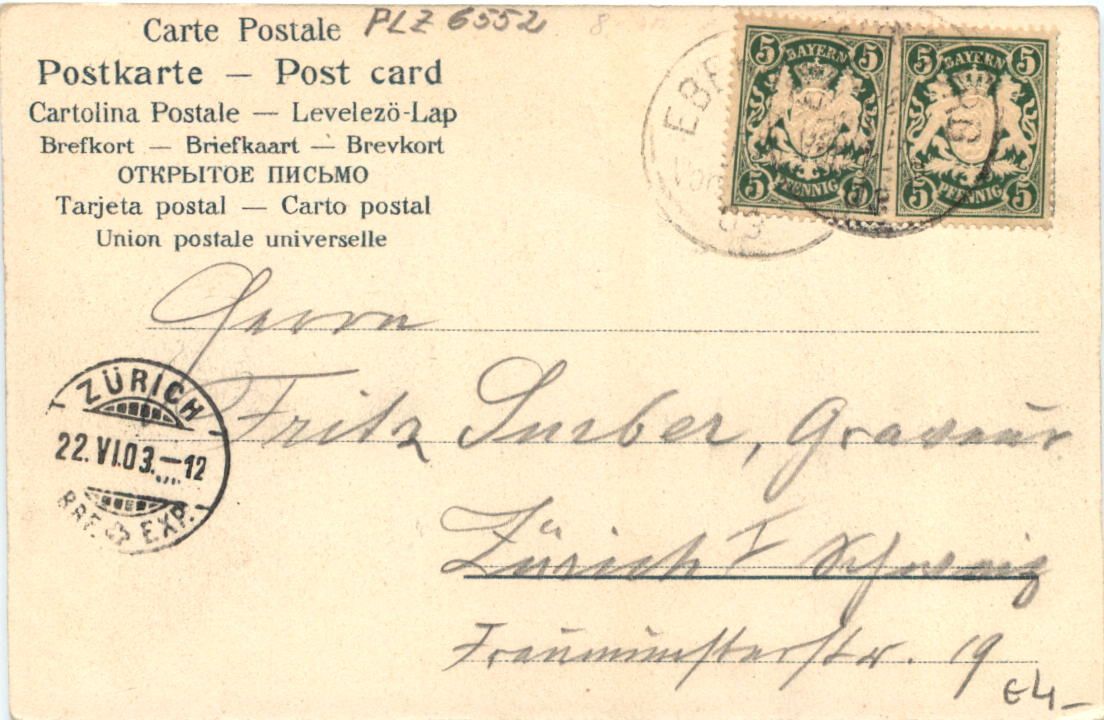 Carte Postale PLZ 6552
Postkarte — Post card
Cartolina Postale — Levelezö-Lap
Brefkort — Briefkaart — Brevkort
ОТКРЫТОЕ ПИСЬМО
Tarjeta postal — Carto postal
Union postale universelle
5 BAYERN 5
5 PFENNIG 5
5 BAYERN 5
5 PFENNIG 5
03
Herrn
Fritz Surber, Graveur
Zürich I Schweiz
Fraumünsterstr. 19
ZÜRICH
22.VI.03.—12
BRF. EXP.